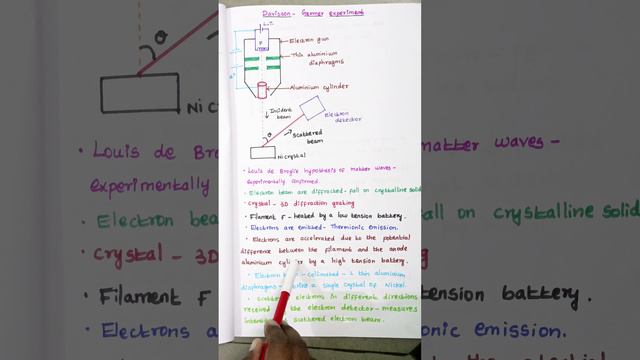 Davisson - Germer experiment
L.T
F
Electron gun
Thin aluminium
diaphragms
Aluminium cylinder
Incident
beam
Electron
detector
Scattered
beam
θ
Ni crystal
• Louis de Broglie hypothesis of matter waves -
experimentally confirmed.
• Electron beam are diffracted - fall on crystalline solid
• Crystal - 3D diffraction grating
• Filament F - heated by a low tension battery.
• Electrons are emitted - Thermionic emission.
• Electrons are accelerated due to the potential
difference between the filament and the anode
aluminium cylinder by a high tension battery.
• Electron - collimated - 2 thin aluminium
diaphragms - a single crystal of Nickel.
• Scattered electrons in different directions
received the electron detector - measures
scattered electron beam.
θ
Ni c
• Louis de B
experimentally
• Electron bea
• Crystal - 3D
• Filament
• Electrons a
matter waves -
ll on crystalline solid
ension battery.
onic emission.